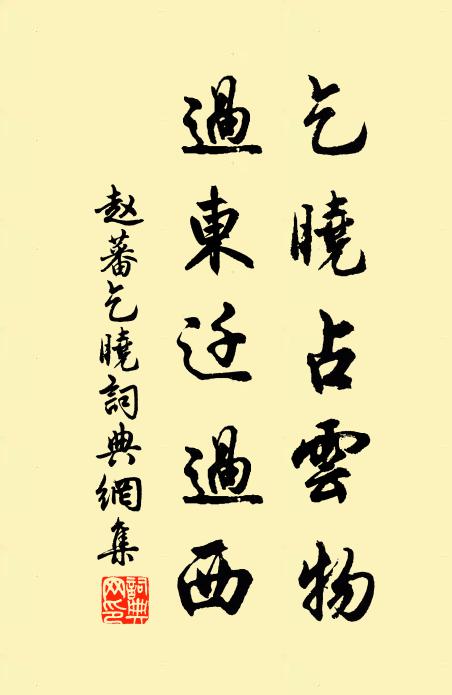 乞曉占雲物
過東過西
赵蕃乞曉詞典網集
詞典网印